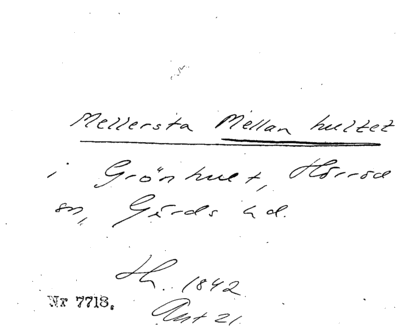 Mellersta Mellan hultet
i Grönhult, Hörröd
sn, Gärds hd.
Lh. 1842
Akt 21.
Nr 7713.